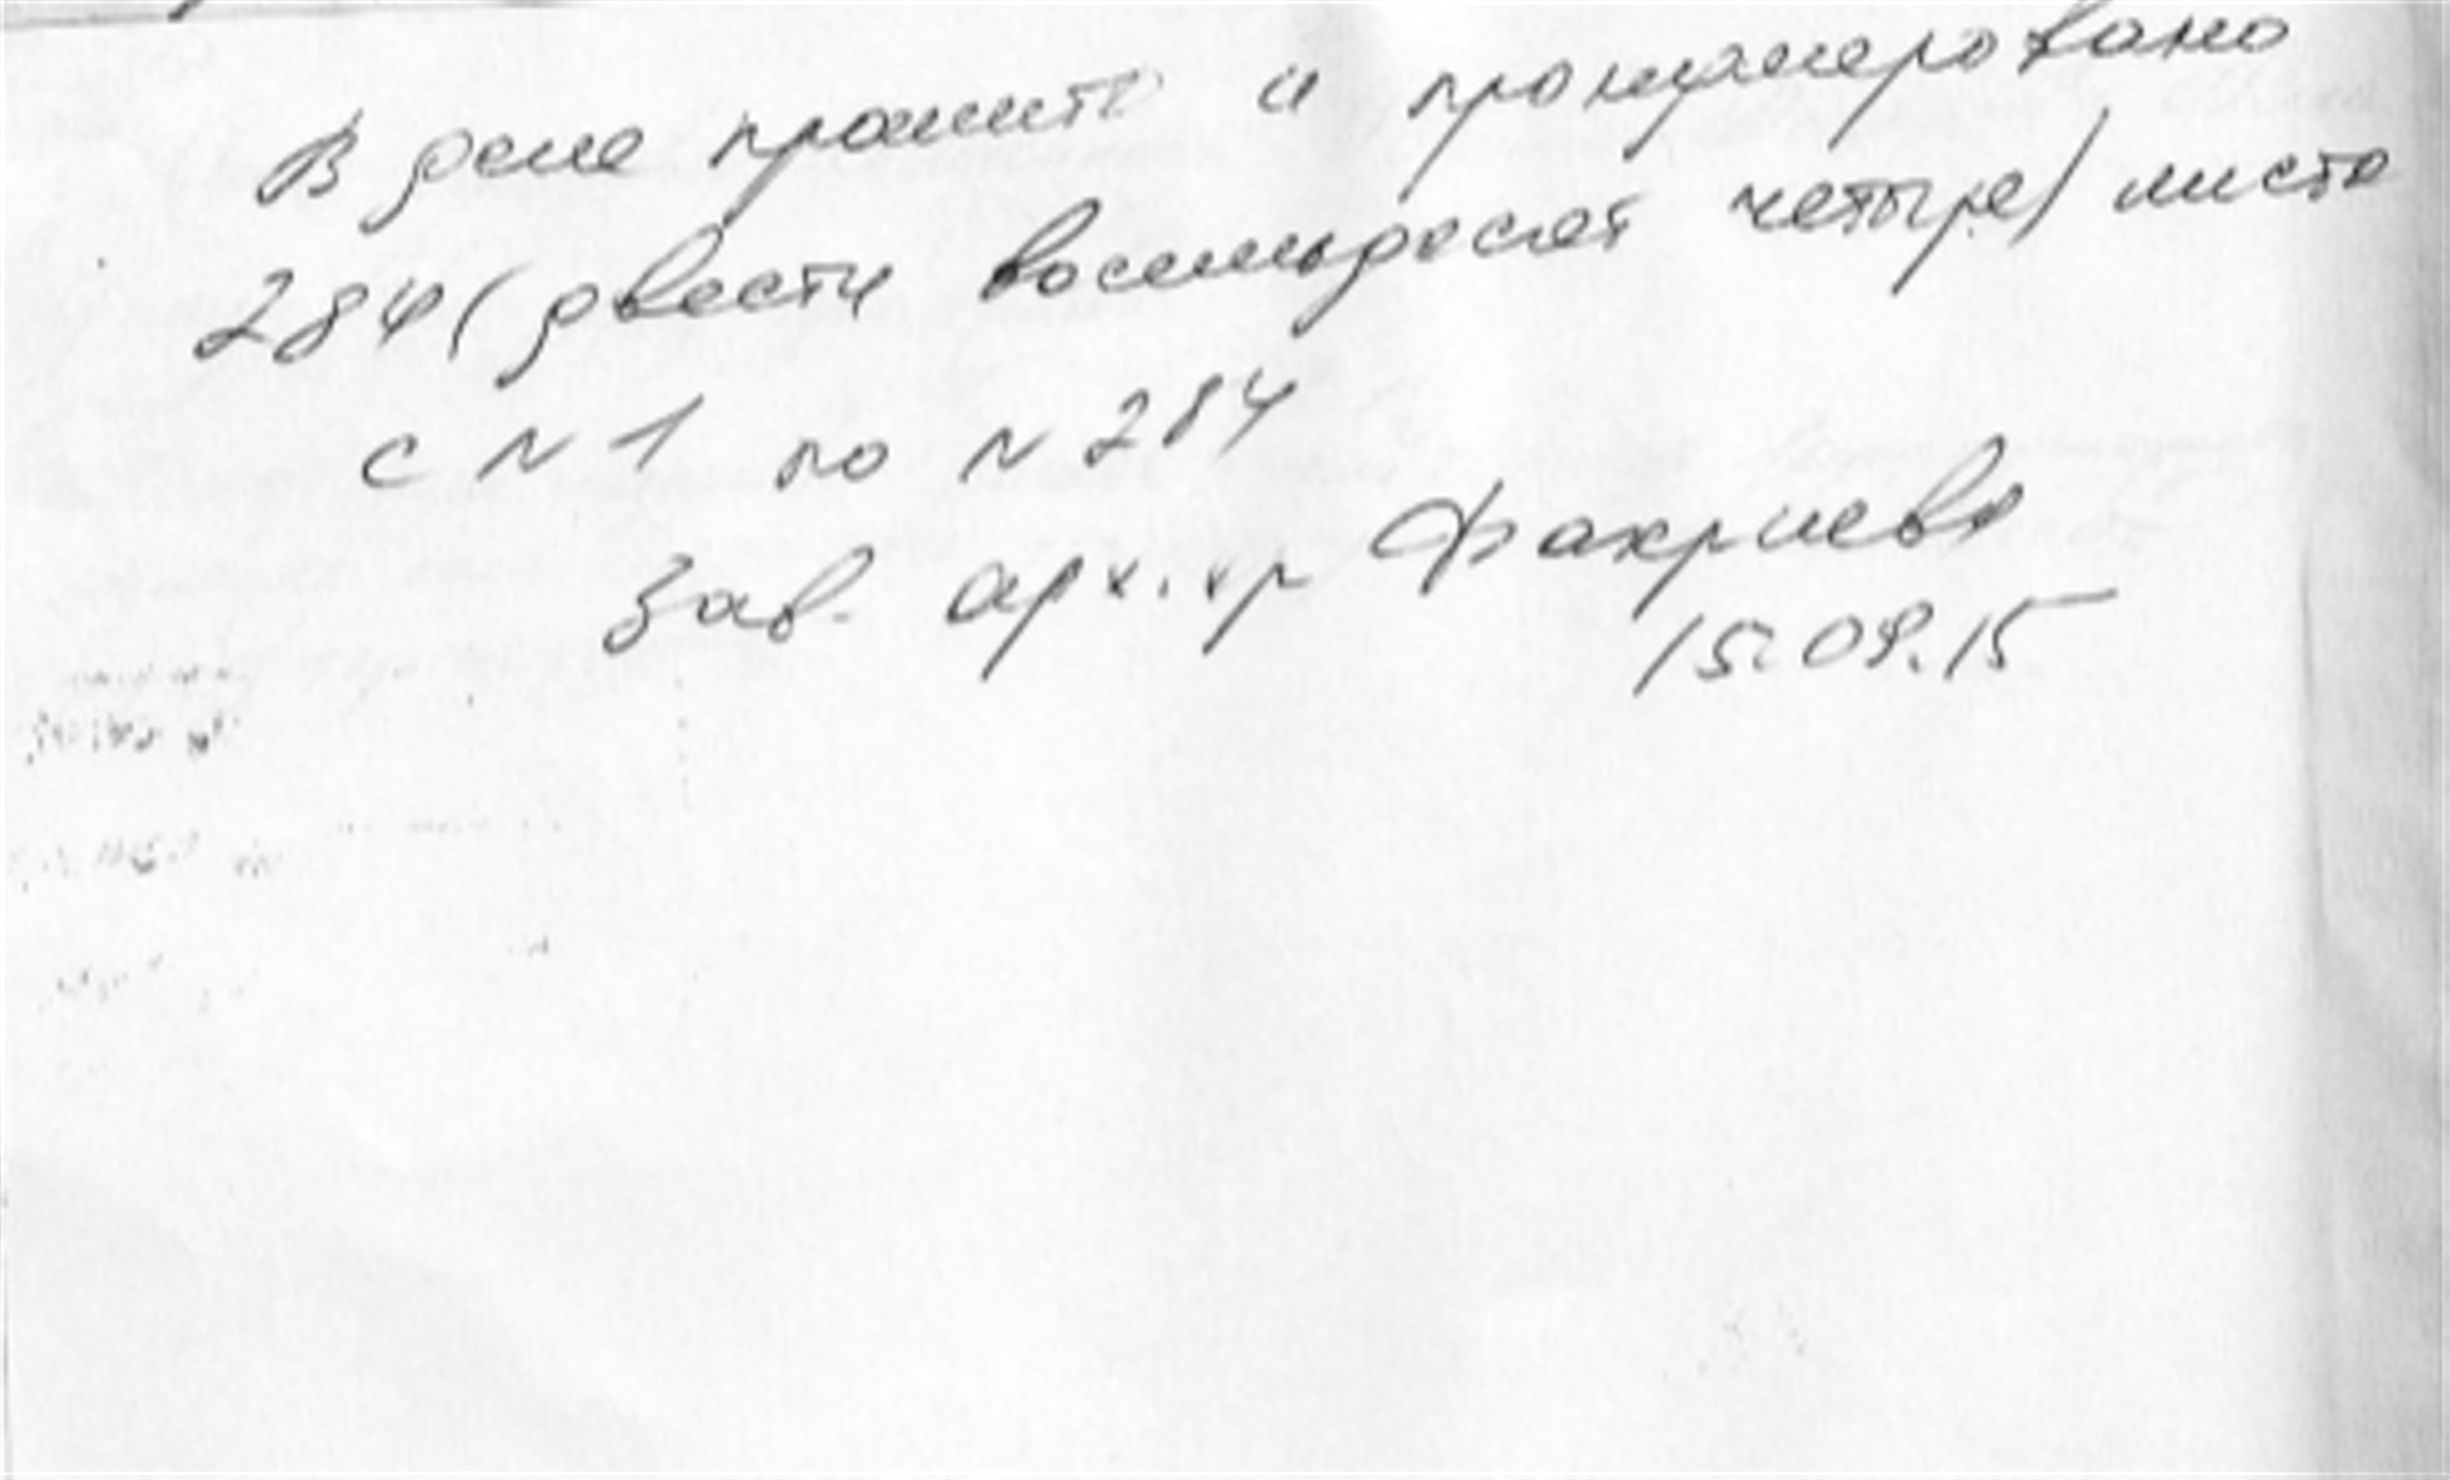 В деле прошито и пронумеровано
284 (двести восемьдесят четыре) листа
с N 1 по N 284
Зав. арх. хр Факриева
15.09.15